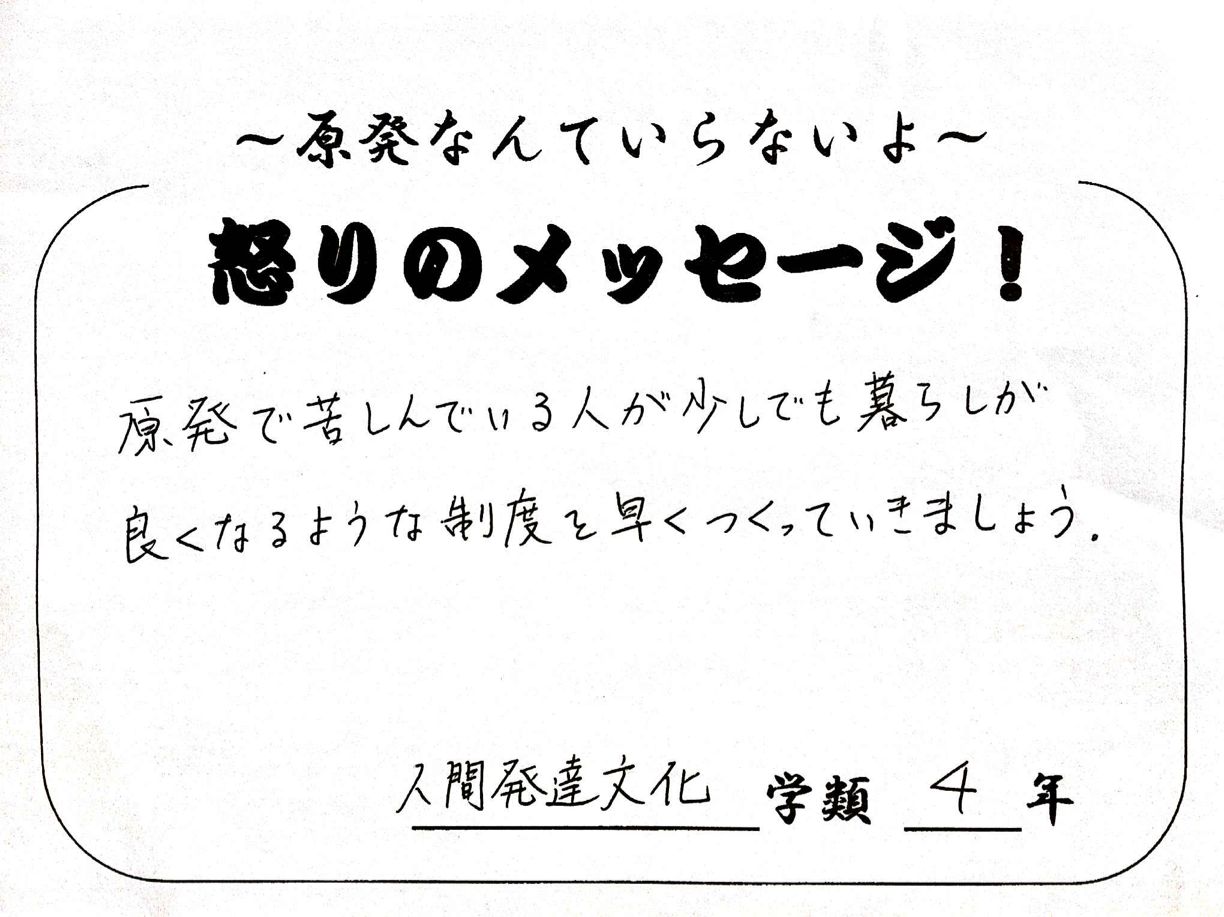 ～原発なんていらないよ～
怒りのメッセージ！
原発で苦しんでいる人が少しでも暮らしが
良くなるような制度を早くつくっていきましょう.
人間発達文化 学類 4 年